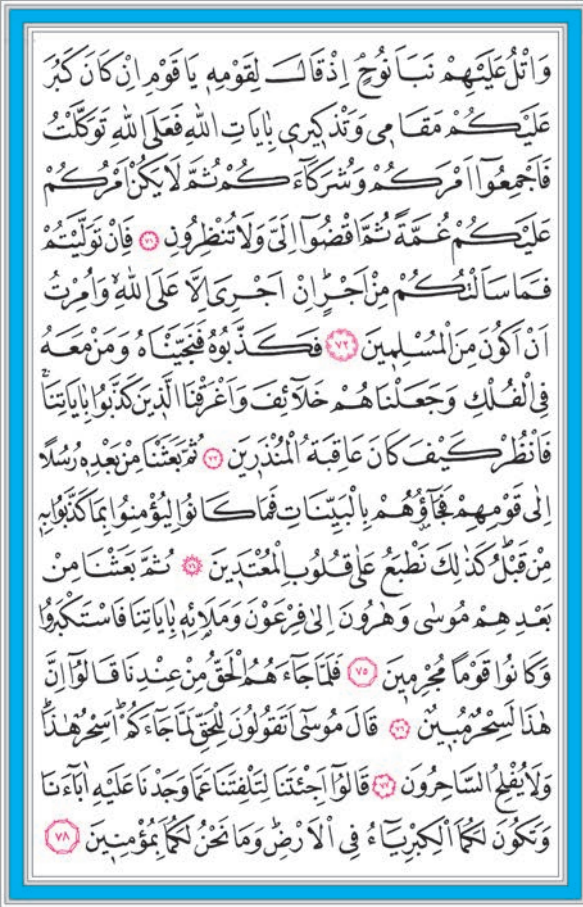 وَاتْلُ عَلَيْهِمْ نَبَاَ نُوحٍۢ اِذْ قَالَ لِقَوْمِه۪ يَا قَوْمِ اِنْ كَانَ كَبُرَ
عَلَيْكُمْ مَقَام۪ي وَتَذْك۪ير۪ي بِاٰيَاتِ اللّٰهِ فَعَلَى اللّٰهِ تَوَكَّلْتُ
فَاَجْمِعُٓوا اَمْرَكُمْ وَشُرَكَٓاءَكُمْ ثُمَّ لَا يَكُنْ اَمْرُكُمْ
عَلَيْكُمْ غُمَّةً ثُمَّ اقْضُٓوا اِلَيَّ وَلَا تُنْظِرُونِ ﴿٧١﴾ فَاِنْ تَوَلَّيْتُمْ
فَمَا سَاَلْتُكُمْ مِنْ اَجْرٍۜ اِنْ اَجْرِيَ اِلَّا عَلَى اللّٰهِۙ وَاُمِرْتُ
اَنْ اَكُونَ مِنَ الْمُسْلِم۪ينَ ﴿٧٢﴾ فَكَذَّبُوهُ فَنَجَّيْنَاهُ وَمَنْ مَعَهُ
فِي الْفُلْكِ وَجَعَلْنَاهُمْ خَلَٓائِفَ وَاَغْرَقْنَا الَّذ۪ينَ كَذَّبُوا بِاٰيَاتِنَاۚ
فَانْظُرْ كَيْفَ كَانَ عَاقِبَةُ الْمُنْذَر۪ينَ ﴿٧٣﴾ ثُمَّ بَعَثْنَا مِنْ بَعْدِه۪ رُسُلًا
اِلٰى قَوْمِهِمْ فَجَٓاؤُ۫هُمْ بِالْبَيِّنَاتِ فَمَا كَانُوا لِيُؤْمِنُوا بِمَا كَذَّبُوا بِه۪
مِنْ قَبْلُۜ كَذٰلِكَ نَطْبَعُ عَلٰى قُلُوبِ الْمُعْتَد۪ينَ ﴿٧٤﴾ ثُمَّ بَعَثْنَا مِنْ
بَعْدِهِمْ مُوسٰى وَهٰرُونَ اِلٰى فِرْعَوْنَ وَمَلَا۬ئِه۪ بِاٰيَاتِنَا فَاسْتَكْبَرُوا
وَكَانُوا قَوْمًا مُجْرِم۪ينَ ﴿٧٥﴾ فَلَمَّا جَٓاءَهُمُ الْحَقُّ مِنْ عِنْدِنَا قَالُٓوا اِنَّ
هٰذَا لَسِحْرٌ مُب۪ينٌ ﴿٧٦﴾ قَالَ مُوسٰٓى اَتَقُولُونَ لِلْحَقِّ لَمَّا جَٓاءَكُمْۜ اَسِحْرٌ هٰذَاۜ
وَلَا يُفْلِحُ السَّاحِرُونَ ﴿٧٧﴾ قَالُٓوا اَجِئْتَنَا لِتَلْفِتَنَا عَمَّا وَجَدْنَا عَلَيْهِ اٰبَٓاءَنَا
وَتَكُونَ لَكُمَا الْكِبْرِيَٓاءُ فِي الْاَرْضِۜ وَمَا نَحْنُ لَكُمَا بِمُؤْمِن۪ينَ ﴿٧٨﴾